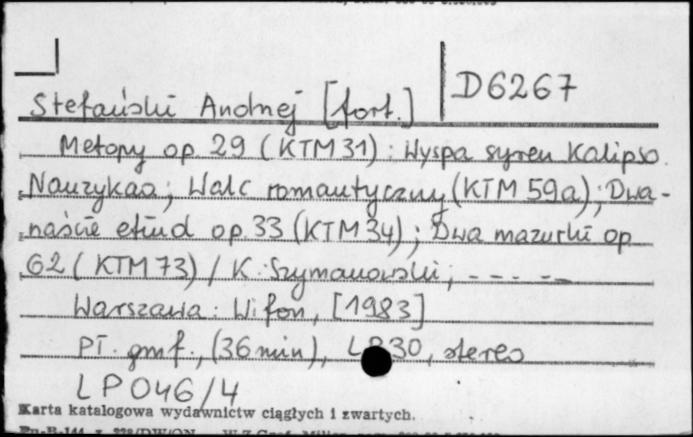 D6267
Stefański Andrzej [fort.]
Metopy op. 29 (KTM 31): Wyspa syren Kalipso.
Nauzykaa; Walc romantyczny (KTM 59a); Dwa-
naście etiud op. 33 (KTM 34); Dwa mazurki op.
62 (KTM 73) / K. Szymanowski; - - - -
Warszawa: Wifon, [1983]
Pł. gmf., (36 min), 30, stereo
LP046/4
Karta katalogowa wydawnictw ciągłych i zwartych.